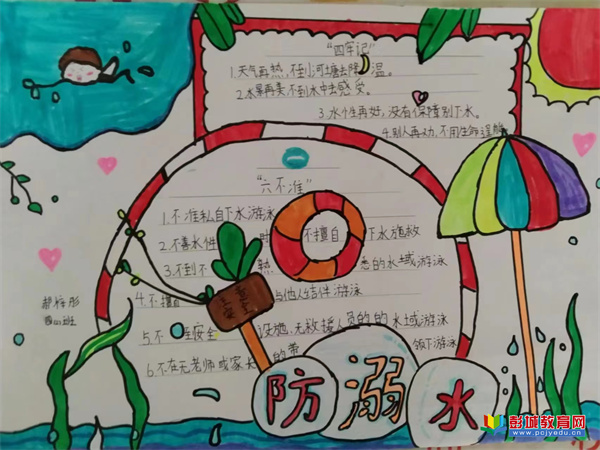 "四牢记"
1.天气再热,不到小河塘去降温。
2.水果再美不到水中去感受。
3.水性再好,没有保障别下水。
4.别人再劝,不用生命逞
"六不准"
1.不准私自下水游泳
2.不善水件 时 不擅自 下水施救
3.不到不 熟悉的水域游泳
4.不擅 与他人结伴游泳
5.不 安全 设施,无救援人员的的水域游泳
6.不在无老师或家长的带 领下游泳
防溺水
彭城教育网
www.pcjyedu.cn